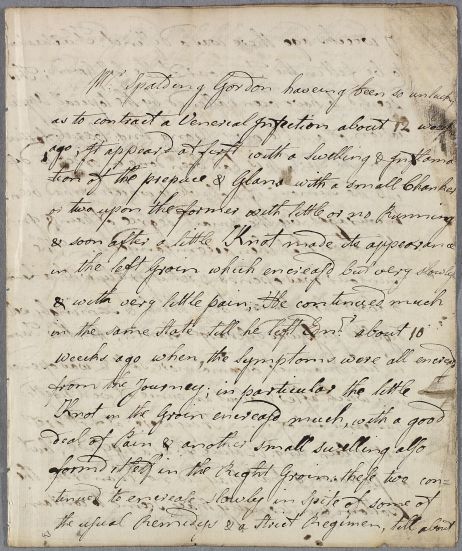 Mr. Spalding Gordon haveing been so unlucky
as to contract a Venereal Infection about 12 weeks
ago, It appeard at first with a swelling & Inflama
tion of the prepuce & Glans with a small Chancker
or two upon the former with little or no Running
& soon after a little Knot made its appearance
in the left Groin which encreasd but very slowley
& with very little pain, He continued much
in the same state till he left Edinr. about 10
weeks ago when the Symptoms were all encreasd
from the Journey, in particular the little
Knot in the Groin encreasd much, with a good
deal of Pain & another small swelling also
formd itself in the Right Groin. these two con=
tinued to encrease slowley in Spite of some of
the usual Remedys & a Strict Regimen, till about